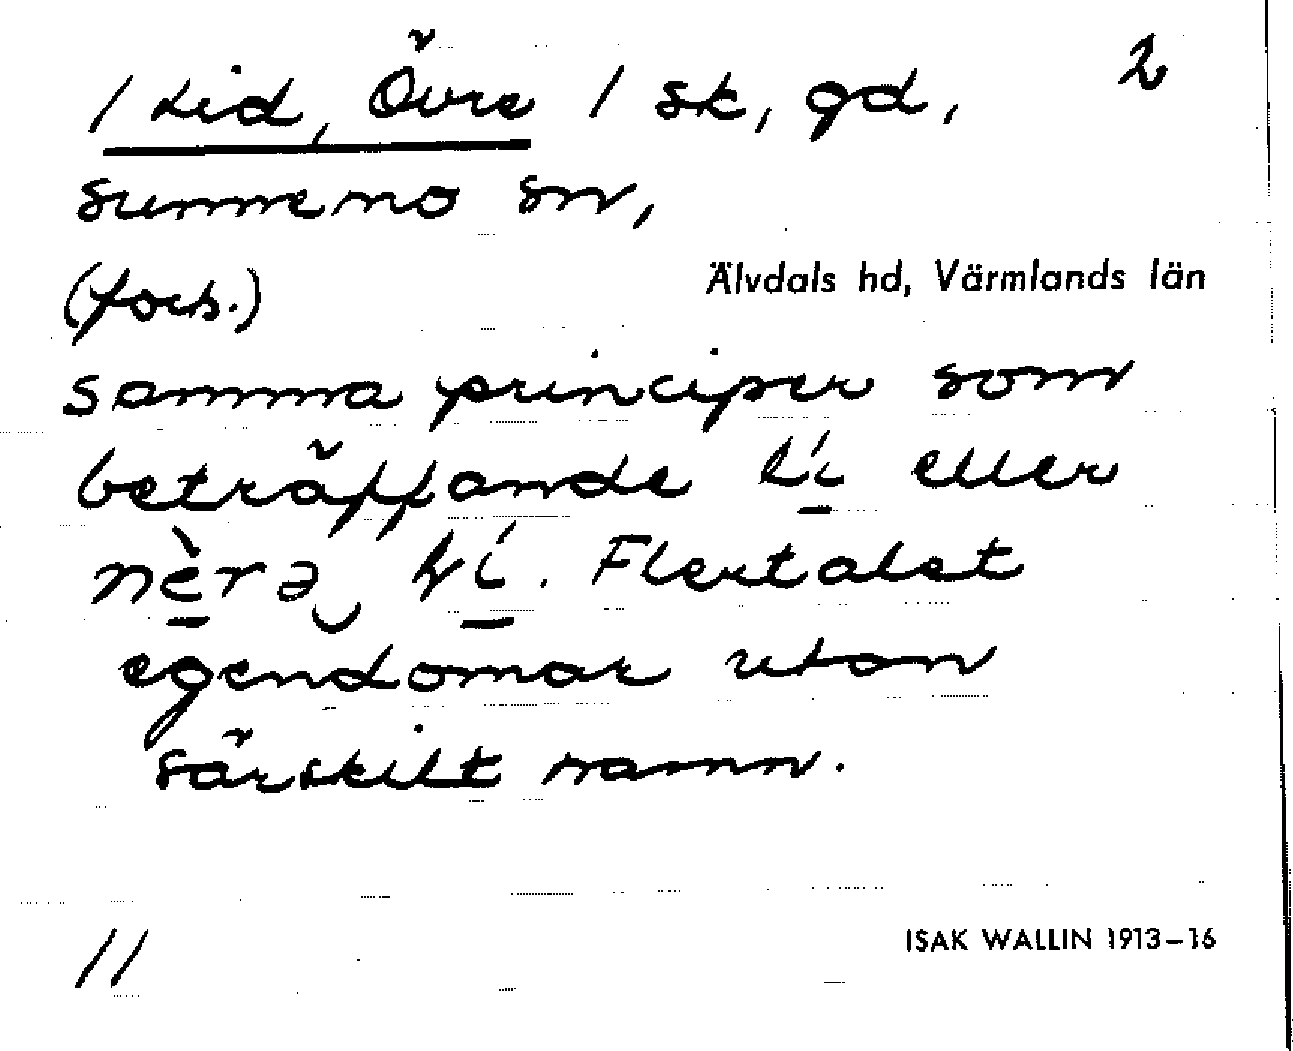 / Lid, Övre / sk, gd, 2
Sunnemo sn,
(forts.)
Älvdals hd, Värmlands län
samma principer som
beträffande eller
Flertalet
egendomar utan
särskilt namn.
11
ISAK WALLIN 1913-16